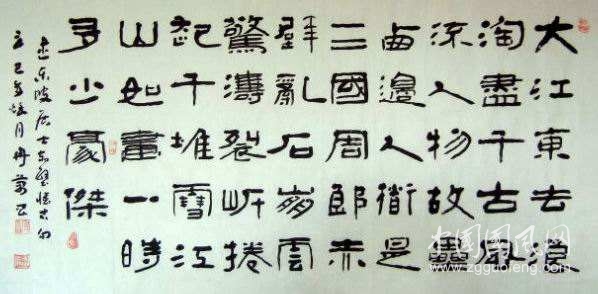 大江東去浪
淘盡千古風
流人物故壘
西邊人衟是
三國周郎赤
壁亂石崩雲
驚濤裂岍捲
起千堆雪江
山如畫一時
多少豪傑
东坡居士赤壁懷古句
辛巳年月
中国国风网
www.zgguofeng.com